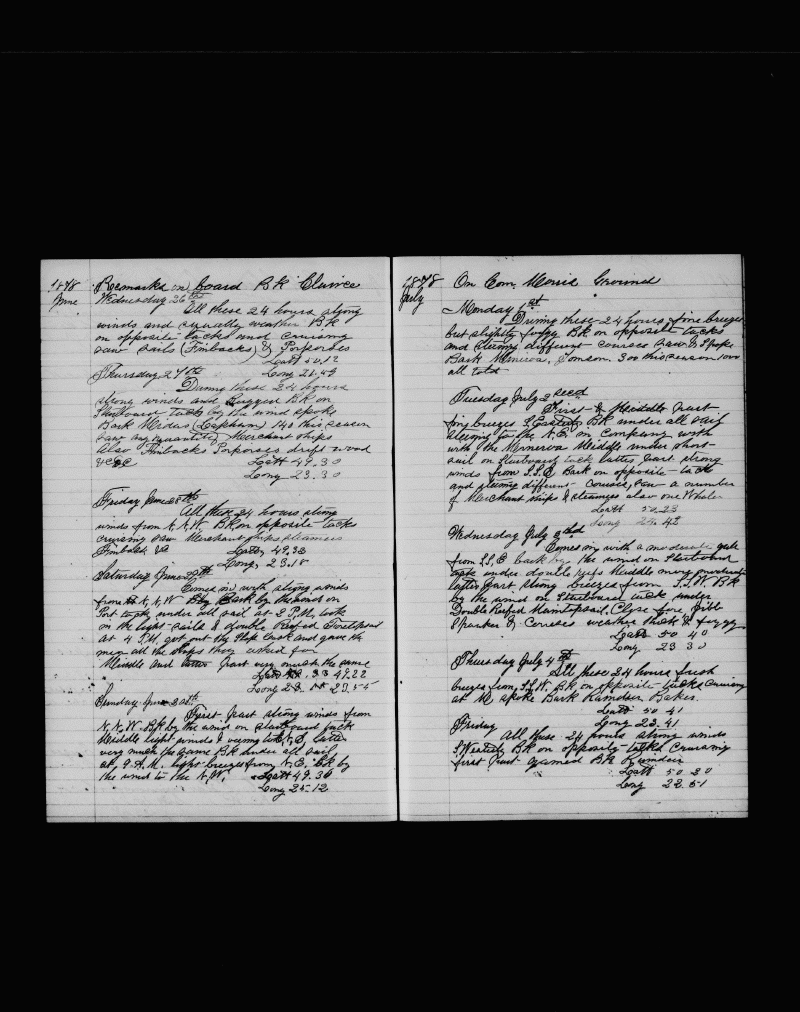 1878 Remarks on board Bk
June Wednesday 26th
All these 24 hours strong
winds and weather Bk
on opposite tacks and cruising
saw sails (Finbacks) & Porpoises
Latt 50.12
Thursday 27th Long 21.49
During these 24 hours
strong winds and Bk on
Starboard tack by the wind spoke
Bark (Lapham) 140 this season
saw any quantity Merchant ships
Also Finbacks Porpoises drift wood
&c &c Latt 49.30
Long 23.30
Friday June 28th
All these 24 hours strong
winds from N.N.W. Bk on opposite tacks
cruising saw Merchant ships steamers
Finbacks &c Latt 49.33
Long 23.18
Saturday June 29th
Comes in with strong winds
from N.N.W Bark by the wind on
Port tack under all sail at 2 P.M. took
in the light sails & double Reefed Foretopsail
at 4 P.M. got out the Slop Cask and gave the
men all the slops they asked for
Middle and latter part very much the same
49.22
Long 23.55
Sunday June 30th
First part strong winds from
N.N.W. Bk by the wind on starboard tack
Middle light winds latter
very much the same Bk under all sail
at 9 A.M. light breezes from N.E. Bk by
the wind to the N.W. Latt 49.36
Long 25.12
1878 On Com. Morris Ground
July
Monday 1st
During these 24 hours fine breezes
but slightly foggy Bk on opposite tacks
and steering different courses saw & spoke
Bark Minerva, 300 this season 1000
all told
Tuesday July 2cecd
First & Middle Part
fine breezes S Easterly Bk under all sail
steering to the N.E. in Company with
with the Minerva Middle under short
sail on Starboard tack latter part strong
winds from S.S.E Bark on opposite tacks
and steering different courses, saw a number
of Merchant ships & steamers also one Whaler
Latt 50.23
Long 23.42
Wednesday July 3rd
Comes in with a moderate gale
from S.S.E bark by the wind on Starboard
tack under double reefs Middle more moderate
latter part strong breezes from S.S.W. Bk
by the wind on Starboard tack under
Double Reefed Maintopsail, Close fore, Jibb
Spanker & Courses weather thick & foggy
Latt 50 40
Long 23 30
Thursday July 4th
All these 24 hours fresh
breezes from S.S.W. Bk on opposite tacks cruising
at M spoke Bark Baker
Latt 50 41
Friday Long 23.41
All these 24 hours strong winds
S Westerly Bk on opposite tacks Cruising
first Part gamed Bk
Latt 50 20
Long 22.51